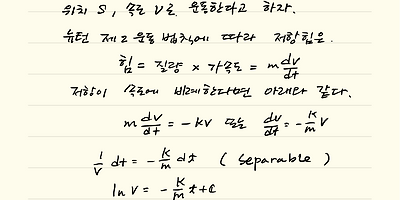 위치 S, 속도 V로 운동한다고 하자.
뉴턴 제 2 운동 법칙에 따라 저항 힘은.
힘 = 질량 × 가속도 = m dv/dt
저항이 속도에 비례한다면 아래와 같다.
m dv/dt = -kv 또는 dv/dt = - k/m v
1/v dt = - k/m dt ( separable )
ln v = - k/m t + c